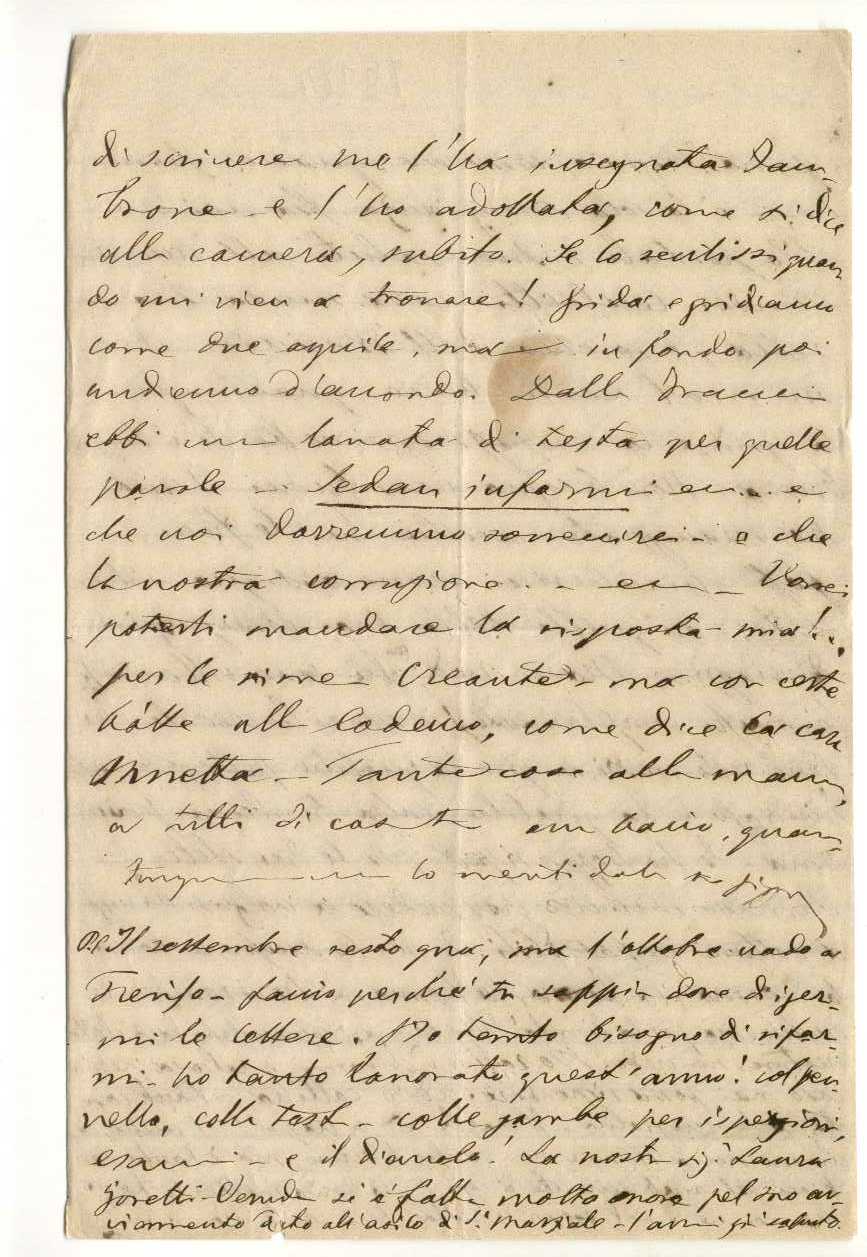 di scrivere me l'ha insegnata Tam-
trone e l'ho adottata, come si dice
alla camera, subito. Se lo sentissi quan
do mi vien a trovare! grida e gridiamo
come due aquile, ma in fondo poi
andiamo d'accordo. Dalla
ebbi una lavata di testa per quelle
parole - Sedan informi e
che noi dovremmo sovvenirci - e che
la nostra corruzione - Vorrei
poterti mandare la risposta mia!..
per le rime - ma con certe
alla come dice la cara
Tante cose alla mam,
a tutti di casa un bacio, quan-
tunque lo meriti
P.S. Il settembre resto qua, ma l'ottobre vado a
Treviso - faccio perchè tu sappia dove diriger-
mi le lettere. Ho tanto bisogno di rifar-
mi - ho tanto lavorato quest'anno! col pen-
nello, colla testa - colle gambe per ispezioni,
esami - e il diavolo! La nostra sig.ª Laura
Goretti-Veruda si è fatta molto onore pel suo av-
viamento dato all'asilo di S. Marziale -